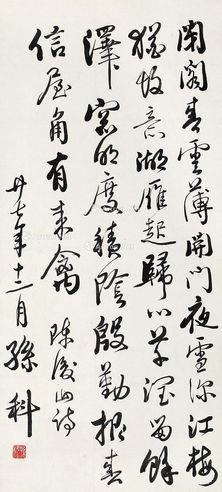 閉閣春雲薄開門夜雪深江梅
猶故意湖雁起歸心草潤留餘
澤窗明度積陰殷勤報春
信屋角有來禽
陳後山詩
卅七年十二月 孫科